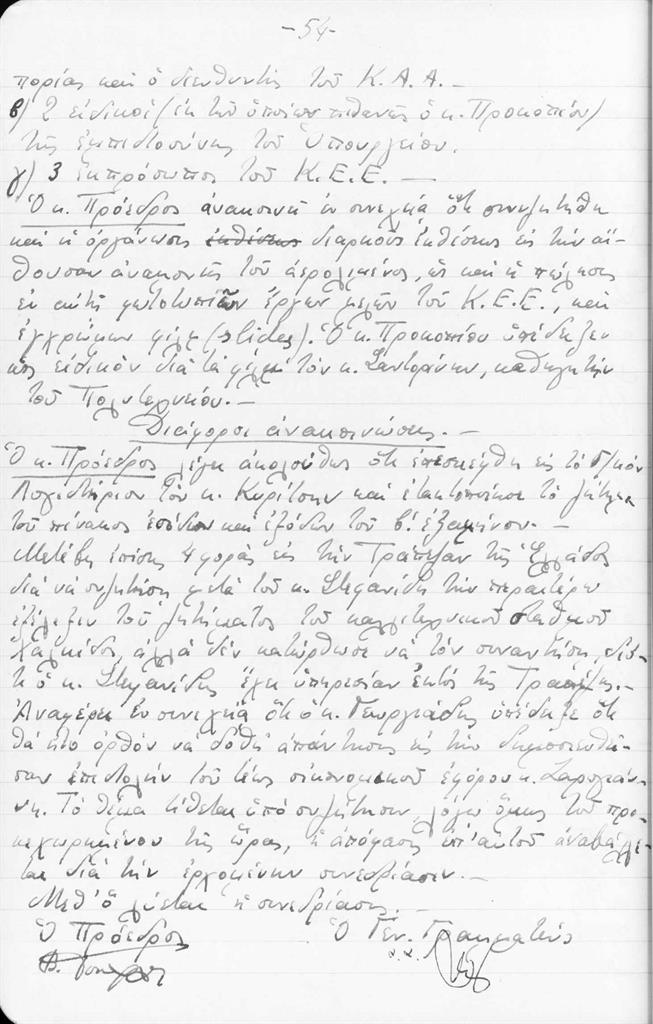 -54-
πορίας καὶ ὁ διευθυντὴς τοῦ Κ.Α.Α.-
β) 2 εἰδικοὶ (ἐκ τῶν ὁποίων πιθανῶς ὁ κ. Προκοπίου)
τῆς ἐμπιστοσύνης τοῦ Ὑπουργείου.
γ) 3 ἐκπρόσωποι τοῦ Κ.Ε.Ε.-
Ὁ κ. Πρόεδρος ἀνακοινεῖ ἐν συνεχείᾳ ὅτι συνεζητήθη
καὶ ἡ ὀργάνωσις ἐκθέσεως διαρκοῦς ἐκθέσεως εἰς τὴν αἴ-
θουσαν ἀναμονῆς τοῦ ἀερολιμένος, ὡς καὶ ἡ πώλησις
ἐν αὐτῇ φωτοτυπιῶν ἔργων μελῶν τοῦ Κ.Ε.Ε., καὶ
ἐγχρώμων φίλμ (slides). Ὁ κ. Προκοπίου ὑπέδειξεν
ὡς εἰδικὸν διὰ τὰ φίλμ τὸν κ. Σαντορίνην, καθηγητὴν
τοῦ Πολυτεχνείου.-
Διάφοροι ἀνακοινώσεις.-
Ὁ κ. Πρόεδρος λέγει ἀκολούθως ὅτι ἐπεσκέφθη εἰς τὸ
Λογιστήριον τὸν κ. Κυρίτσην καὶ ἐτακτοποίησε τὸ ζήτημα
τοῦ πίνακος ἐσόδων καὶ ἐξόδων τοῦ β' ἑξαμήνου.-
Μετέβη ἐπίσης 4 φορὰς εἰς τὴν Τράπεζαν τῆς Ἑλλάδος
διὰ νὰ συζητήσῃ μετὰ τοῦ κ. Στεφανίδη τὴν περαιτέρω
ἐξέλιξιν τοῦ ζητήματος τοῦ καλλιτεχνικοῦ σταθμοῦ
Χαλκίδος, ἀλλὰ δὲν κατώρθωσε νὰ τὸν συναντήσῃ, διό-
τι ὁ κ. Στεφανίδης ἔχει ὑπηρεσίαν ἐκτὸς τῆς Τραπέζης.-
Ἀναφέρει ἐν συνεχείᾳ ὅτι ὁ κ. Γεωργιάδης ὑπέδειξε ὅτι
θὰ ἦτο ὀρθὸν νὰ δοθῇ ἀπάντησις εἰς τὴν δημοσιευθεῖ-
σαν ἐπιστολὴν τοῦ τέως οἰκονομικοῦ ἐφόρου κ. Σαρογιάν-
νη. Τὸ θέμα τίθεται ὑπὸ συζήτησιν, λόγῳ ὅμως τοῦ προ-
κεχωρημένου τῆς ὥρας, ἡ ἀπόφασις ἐπ' αὐτοῦ ἀναβάλλε-
ται διὰ τὴν ἐρχομένην συνεδρίασιν.-
Μεθ' ὃ λύεται ἡ συνεδρίασις.-
Ὁ Πρόεδρος Ὁ Γεν. Γραμματεὺς